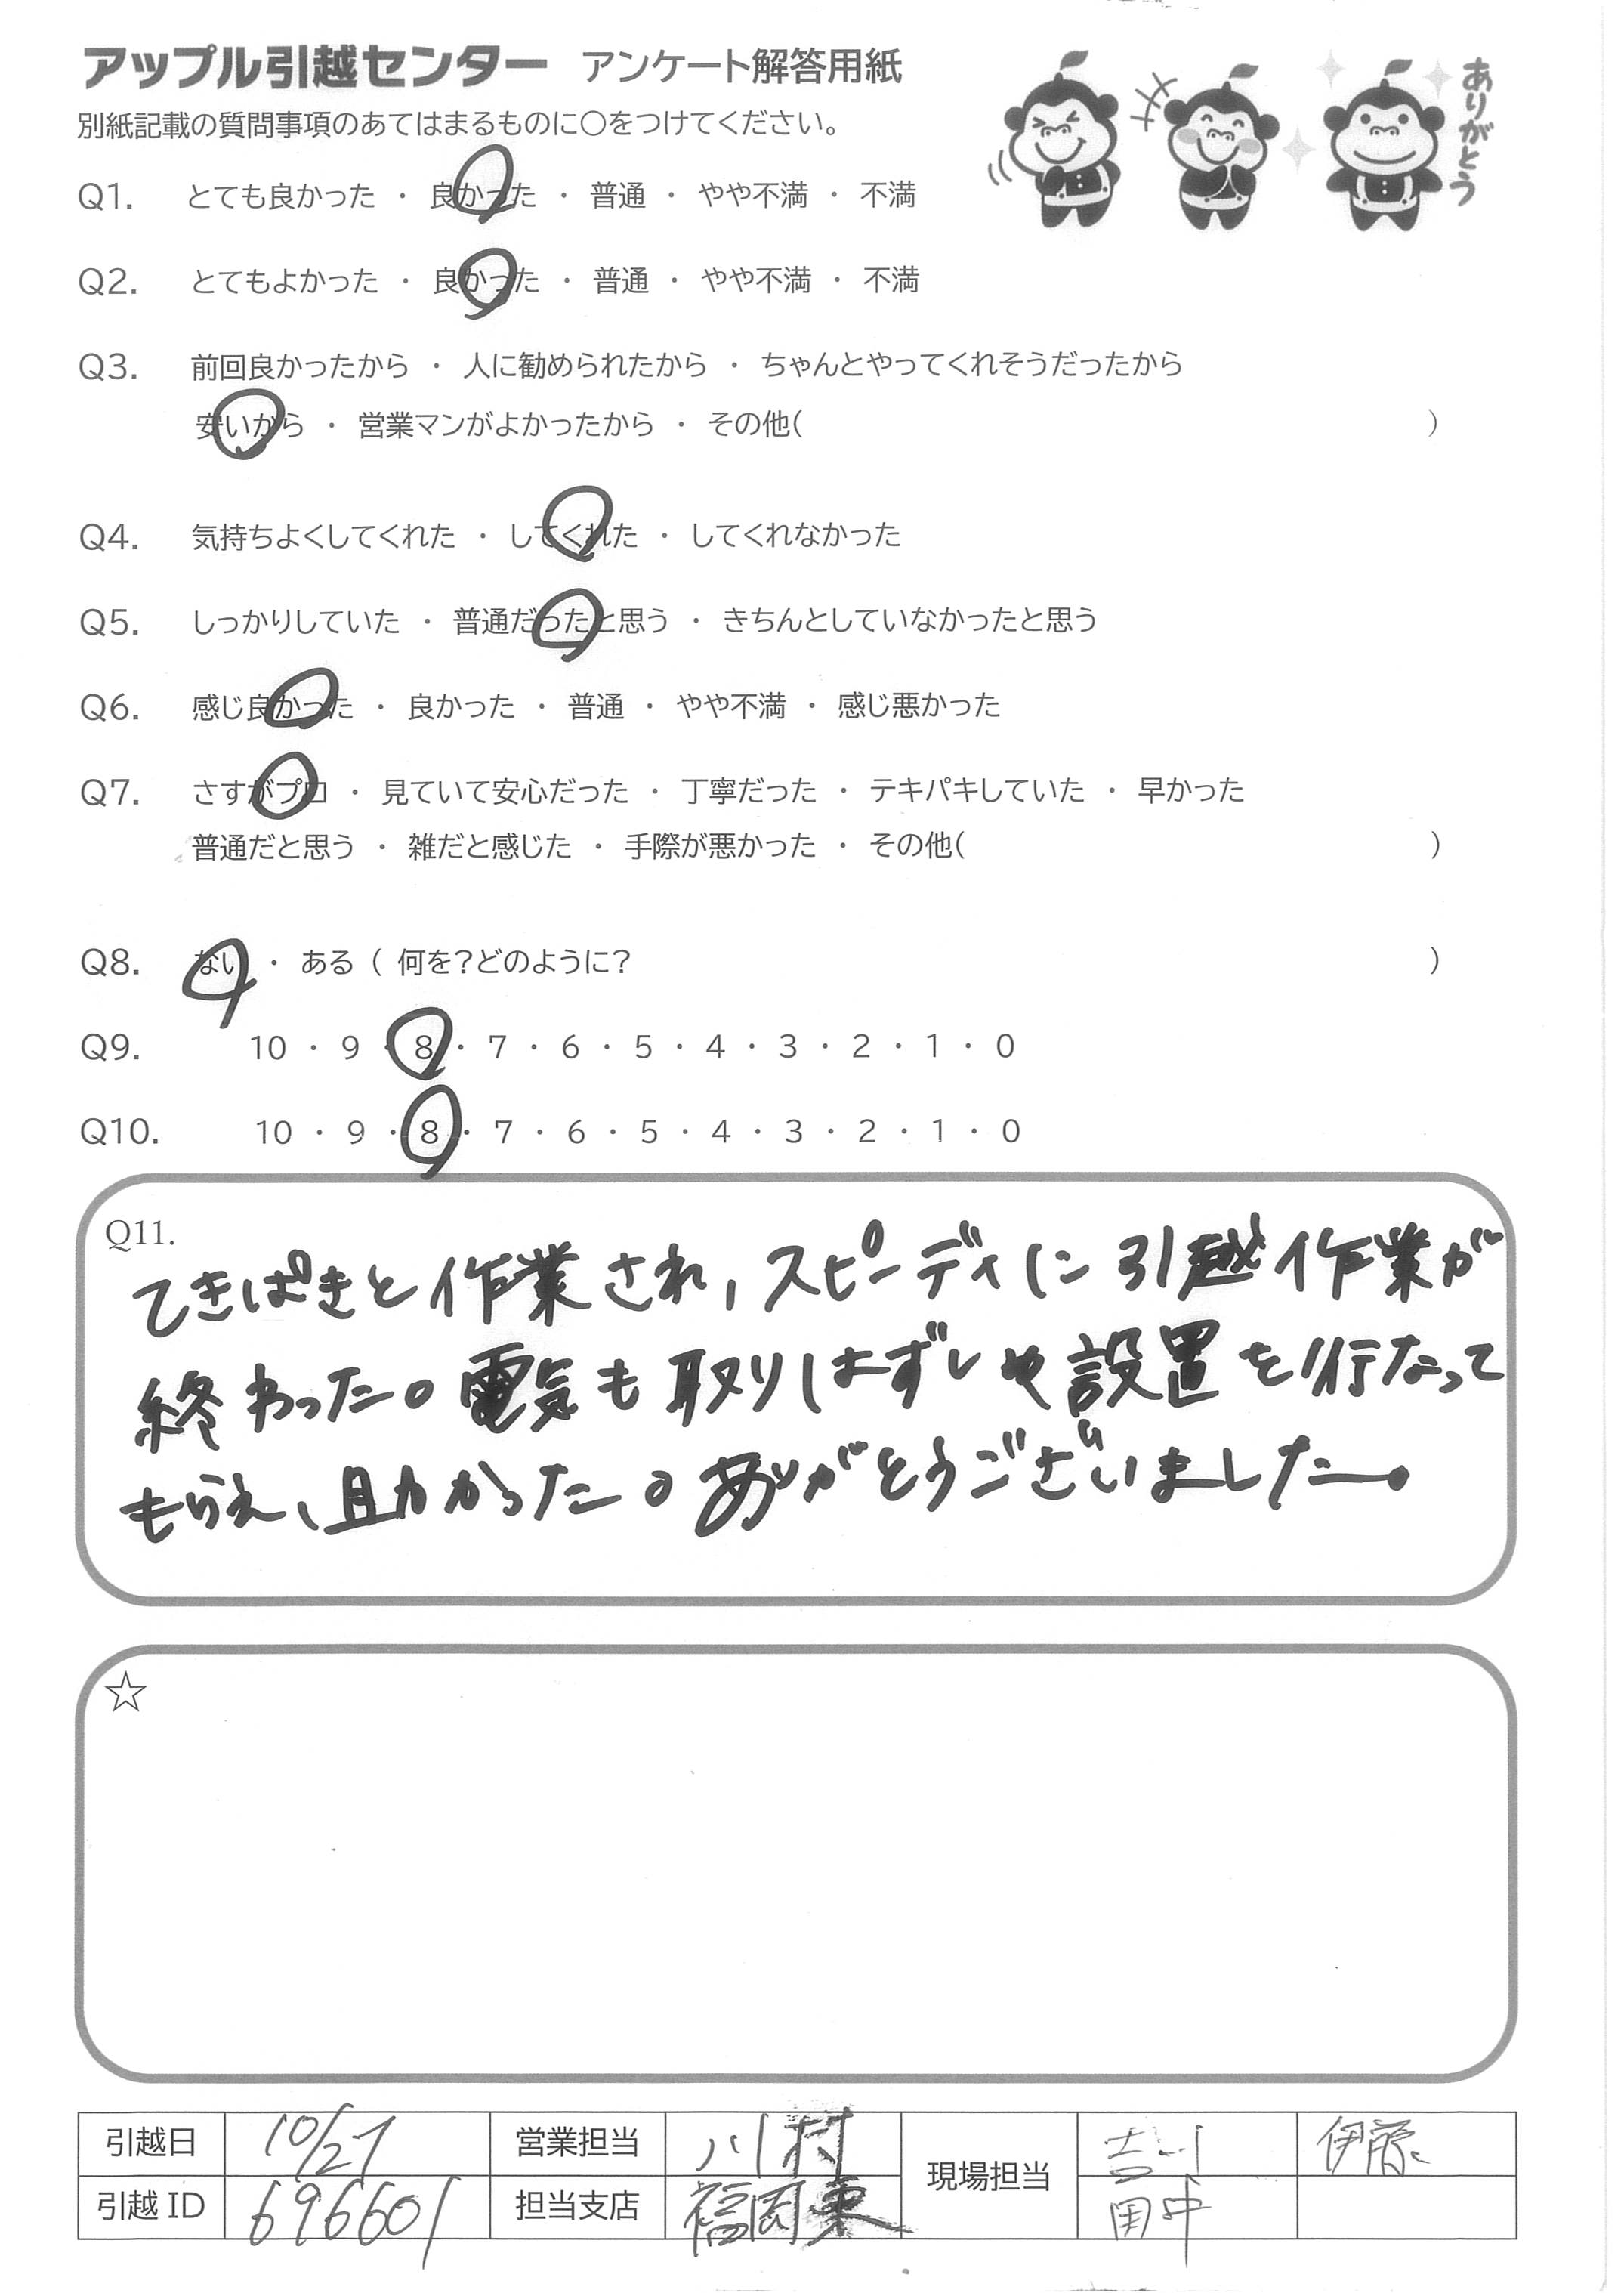 アップル引越センター アンケート解答用紙
ありがとう
別紙記載の質問事項のあてはまるものに○をつけてください。
Q1. とても良かった ・ 良かった ・ 普通 ・ やや不満 ・ 不満
Q2. とてもよかった ・ 良かった ・ 普通 ・ やや不満 ・ 不満
Q3. 前回良かったから ・ 人に勧められたから ・ ちゃんとやってくれそうだったから
安いから ・ 営業マンがよかったから ・ その他( )
Q4. 気持ちよくしてくれた ・ してくれた ・ してくれなかった
Q5. しっかりしていた ・ 普通だったと思う ・ きちんとしていなかったと思う
Q6. 感じ良かった ・ 良かった ・ 普通 ・ やや不満 ・ 感じ悪かった
Q7. さすがプロ ・ 見ていて安心だった ・ 丁寧だった ・ テキパキしていた ・ 早かった
普通だと思う ・ 雑だと感じた ・ 手際が悪かった ・ その他( )
Q8. ない ・ ある ( 何を?どのように? )
Q9. 10 ・ 9 ・ 8 ・ 7 ・ 6 ・ 5 ・ 4 ・ 3 ・ 2 ・ 1 ・ 0
Q10. 10 ・ 9 ・ 8 ・ 7 ・ 6 ・ 5 ・ 4 ・ 3 ・ 2 ・ 1 ・ 0
Q11.
てきぱきと作業され、スピーディに引越作業が
終わった。電気も取りはずしや設置を行なって
もらえ、助かった。ありがとうございました。
☆
引越日 10/27 営業担当 川村 現場担当 吉川 伊藤
引越 ID 696601 担当支店 福岡東 田中